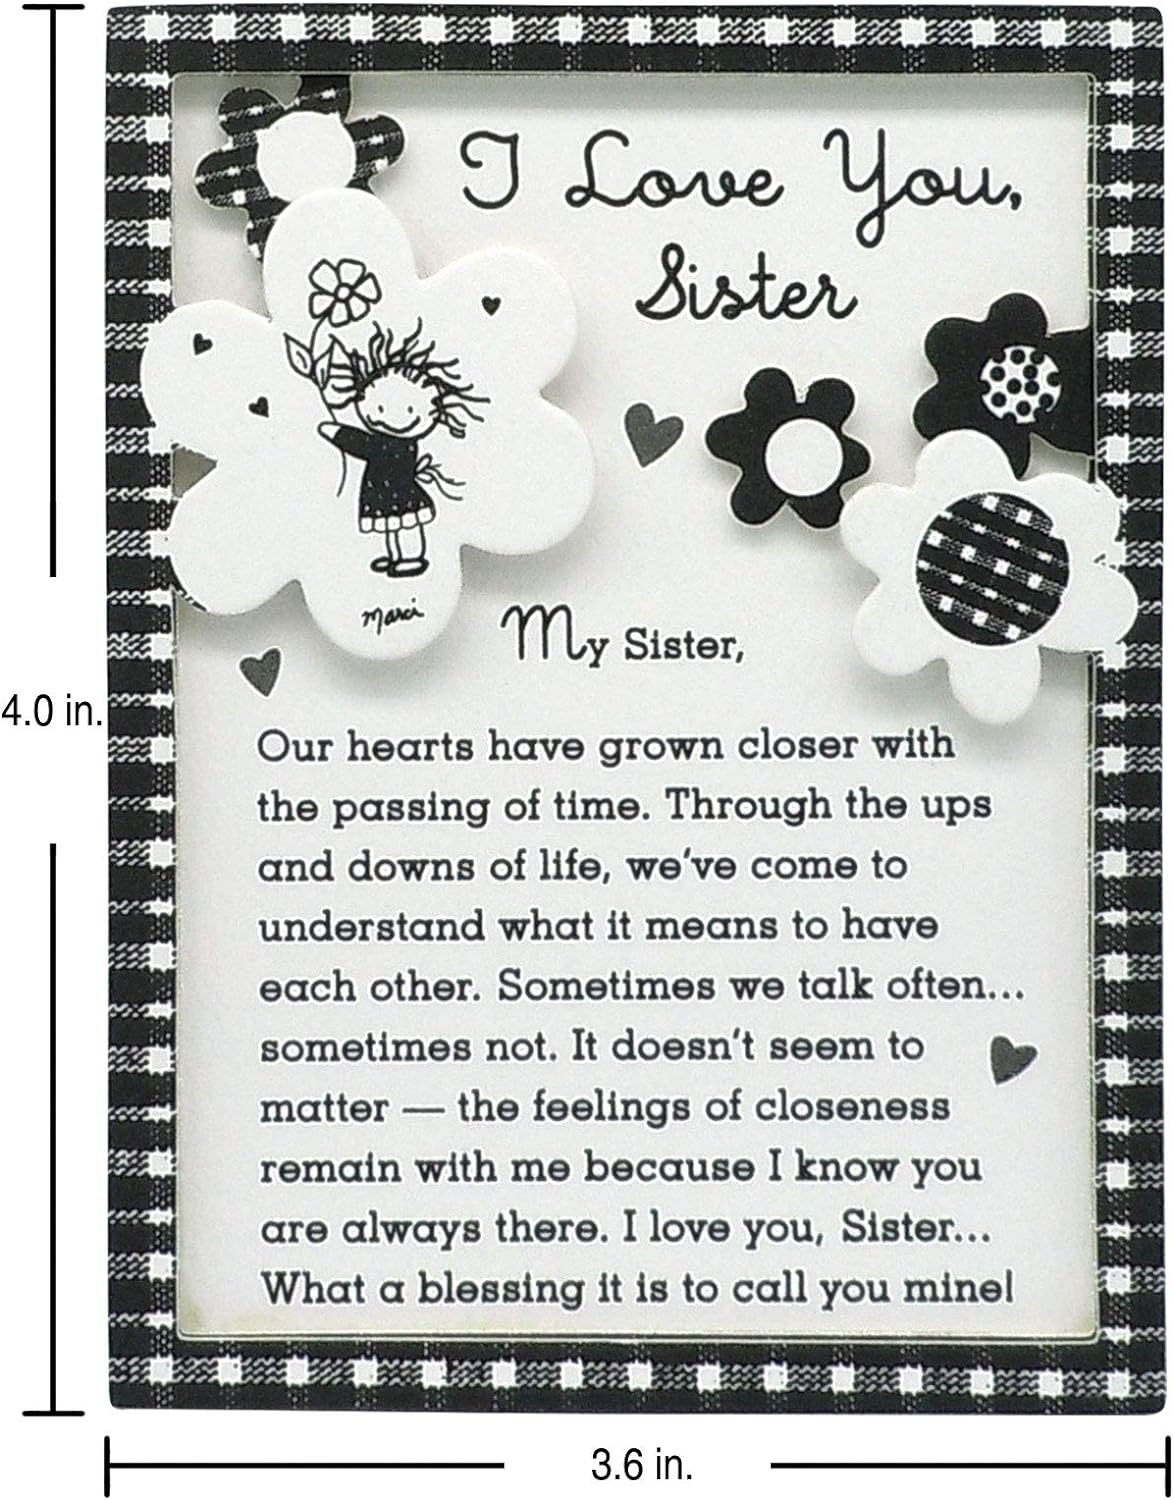 I Love You,
Sister
Marci
My Sister,
4.0 in.
Our hearts have grown closer with
the passing of time. Through the ups
and downs of life, we've come to
understand what it means to have
each other. Sometimes we talk often...
sometimes not. It doesn't seem to
matter — the feelings of closeness
remain with me because I know you
are always there. I love you, Sister...
What a blessing it is to call you mine!
3.6 in.